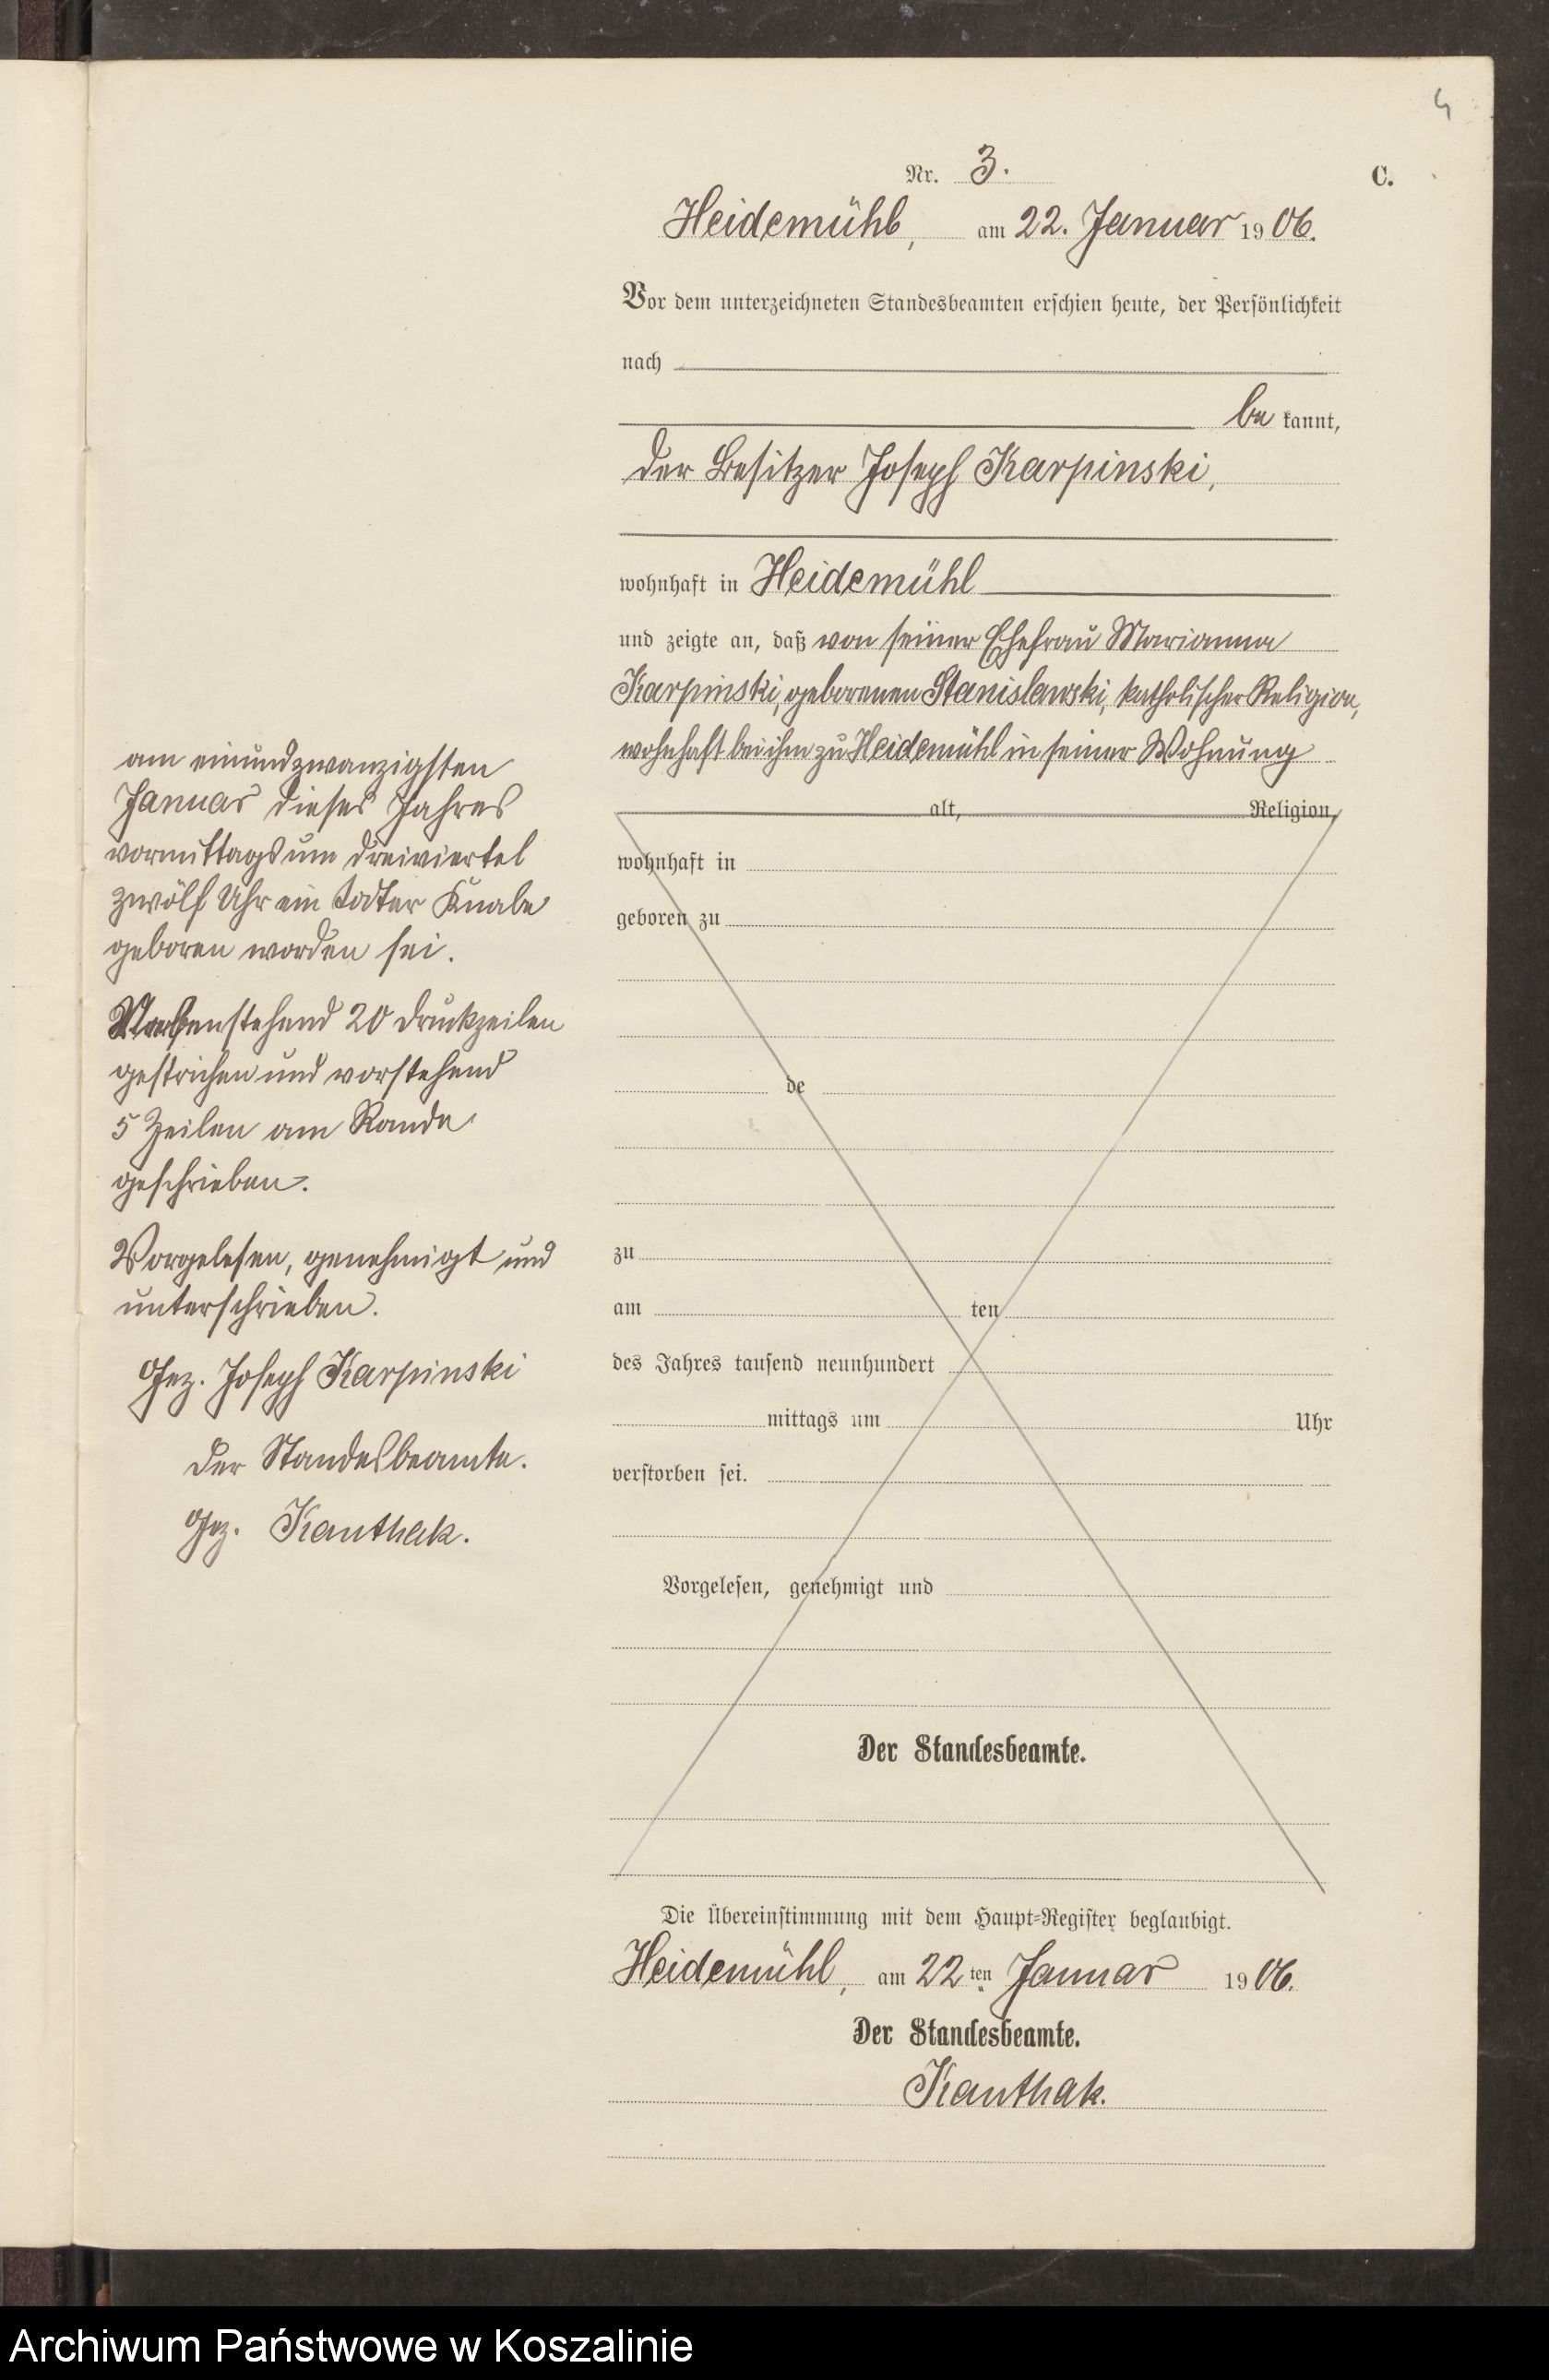 4
Nr. 3.
C.
Heidemühl, am 22. Januar 1906.
Vor dem unterzeichneten Standesbeamten erschien heute, der Persönlichkeit
nach
be kannt,
der Besitzer Joseph Karpinski,
wohnhaft in Heidemühl
und zeigte an, daß von seiner Ehefrau Marianna
Karpinski, geborenen Stanislawski, katholischer Religion,
wohnhaft bei ihm zu Heidemühl in seiner Wohnung
alt, Religion,
wohnhaft in
geboren zu
de
zu
am ten
des Jahres tausend neunhundert
mittags um Uhr
verstorben sei.
Vorgelesen, genehmigt und
Der Standesbeamte.
am einundzwanzigsten
Januar dieses Jahres
vormittags um dreiviertel
zwölf Uhr ein todter Knabe
geboren worden sei.
Nebenstehend 20 Druckzeilen
gestrichen und vorstehend
5 Zeilen am Rande
geschrieben.
Vorgelesen, genehmigt und
unterschrieben.
Gez. Joseph Karpinski
Der Standesbeamte.
Gez. Kanthak.
Die Übereinstimmung mit dem Haupt-Register beglaubigt.
Heidemühl, am 22ten Januar 1906.
Der Standesbeamte.
Kanthak.
Archiwum Państwowe w Koszalinie